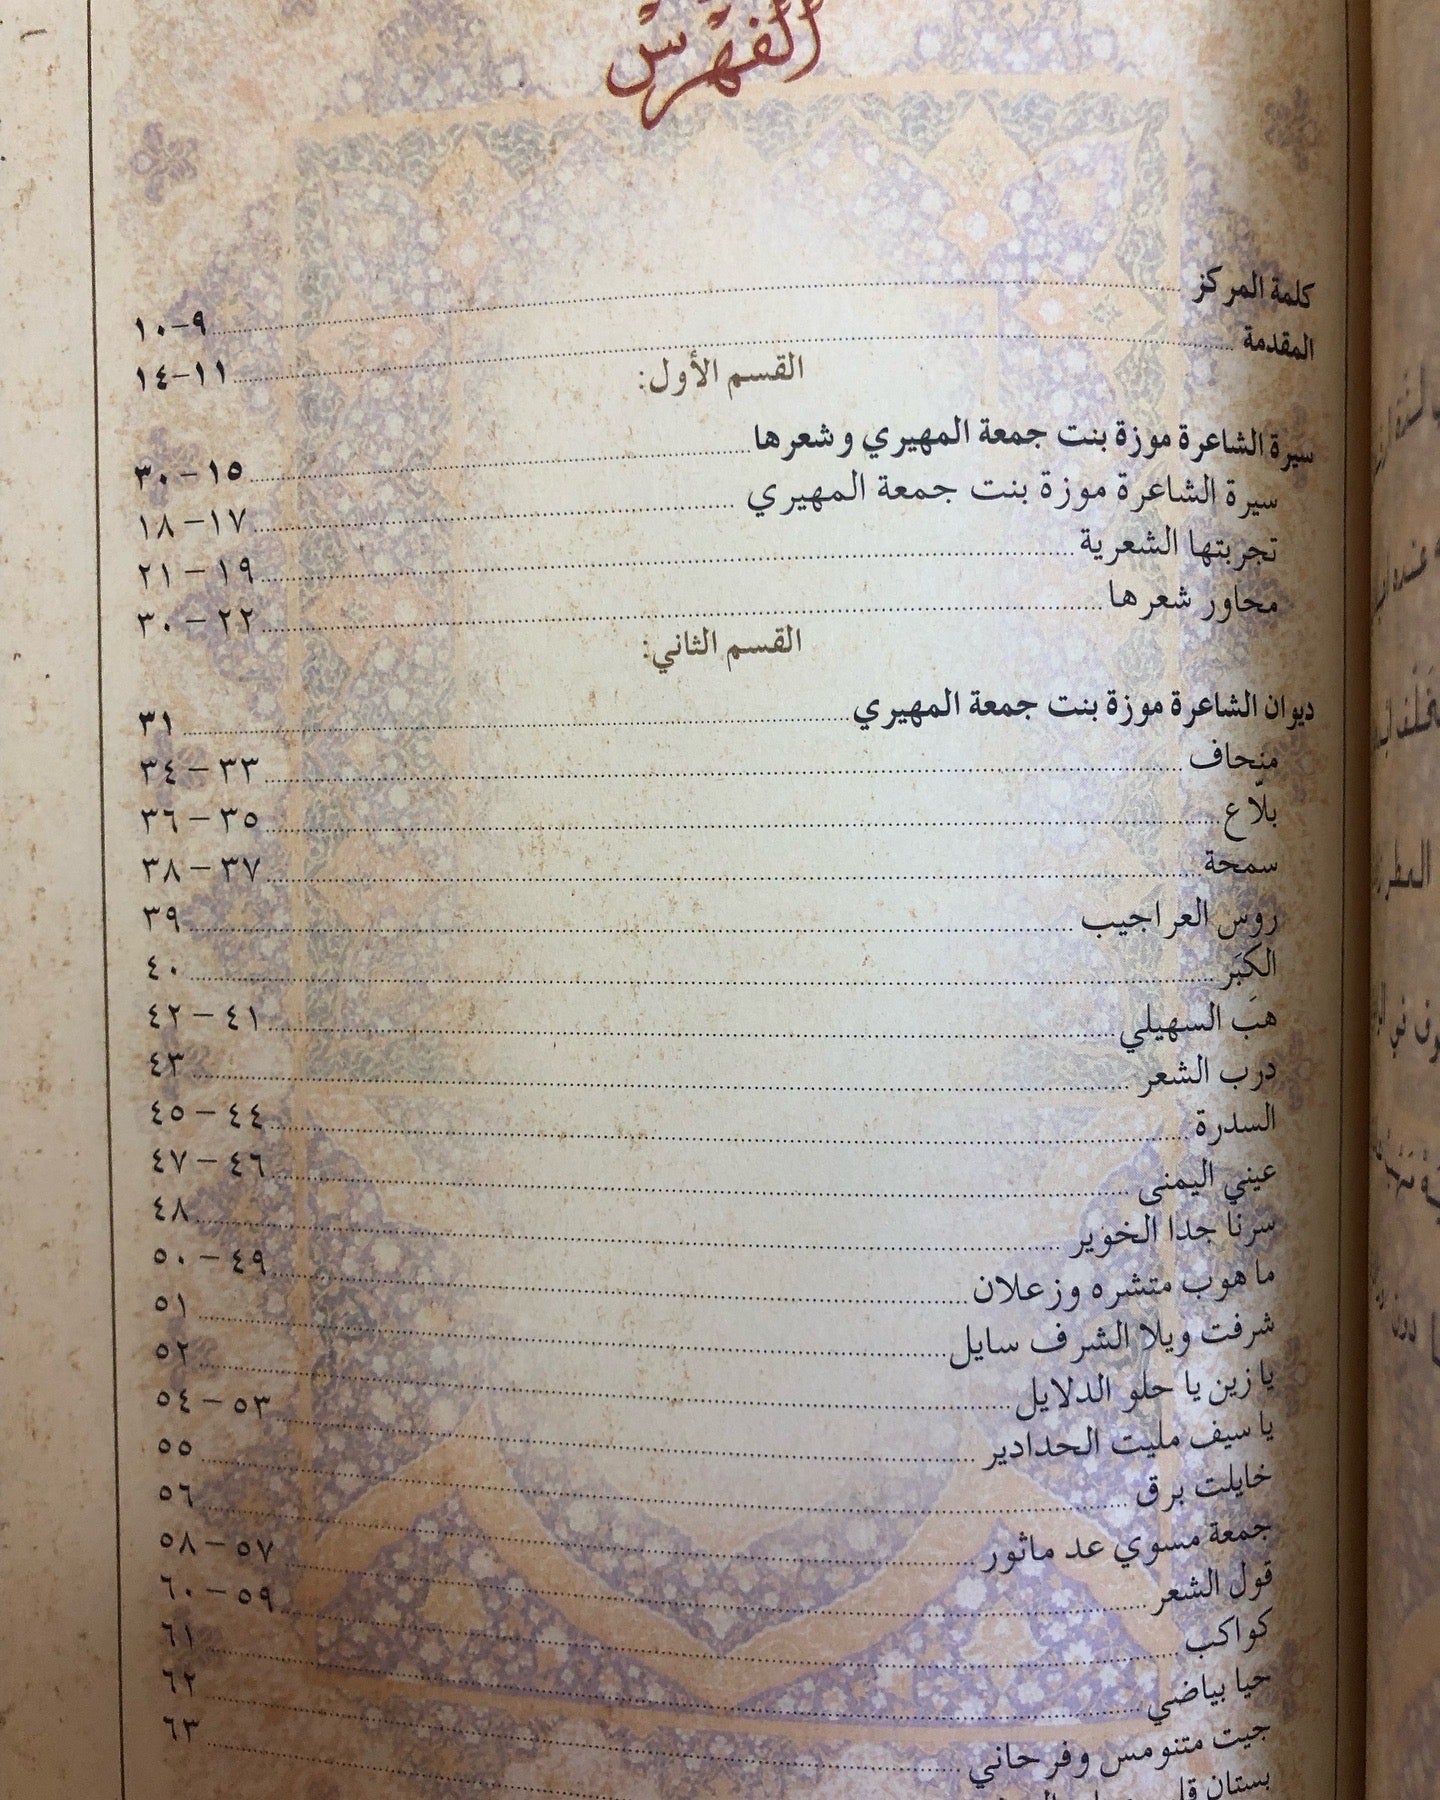 الفهرس
كلمة المركز ........ ٩-١٠
المقدمة ........ ١١-١٤
القسم الأول:
سيرة الشاعرة موزة بنت جمعة المهيري وشعرها ........ ١٥ - ٣٠
سيرة الشاعرة موزة بنت جمعة المهيري ........ ١٧ - ١٨
تجربتها الشعرية ........ ١٩ - ٢١
محاور شعرها ........ ٢٢ - ٣٠
القسم الثاني:
ديوان الشاعرة موزة بنت جمعة المهيري ........ ٣١
منحاف ........ ٣٣ - ٣٤
بلّاع ........ ٣٥ - ٣٦
سمحة ........ ٣٧ - ٣٨
روس العراجيب ........ ٣٩
الكبَر ........ ٤٠
هبَ السهيلي ........ ٤١ - ٤٢
درب الشعر ........ ٤٣
السدرة ........ ٤٤ - ٤٥
عيني اليمنى ........ ٤٦ - ٤٧
سرنا جدا الخوير ........ ٤٨
ما هوب متشره وزعلان ........ ٤٩ - ٥٠
شرفت ويلا الشرف سايل ........ ٥١
يا زين يا حلو الدلايل ........ ٥٢
يا سيف مليت الحدادير ........ ٥٣ - ٥٤
خايلت برق ........ ٥٥
جمعة مسوي عد ماثور ........ ٥٦
قول الشعر ........ ٥٧ - ٥٨
كواكب ........ ٥٩ - ٦٠
حيا بياضي ........ ٦١
جيت متنومس وفرحاني ........ ٦٢
بستان ........ ٦٣